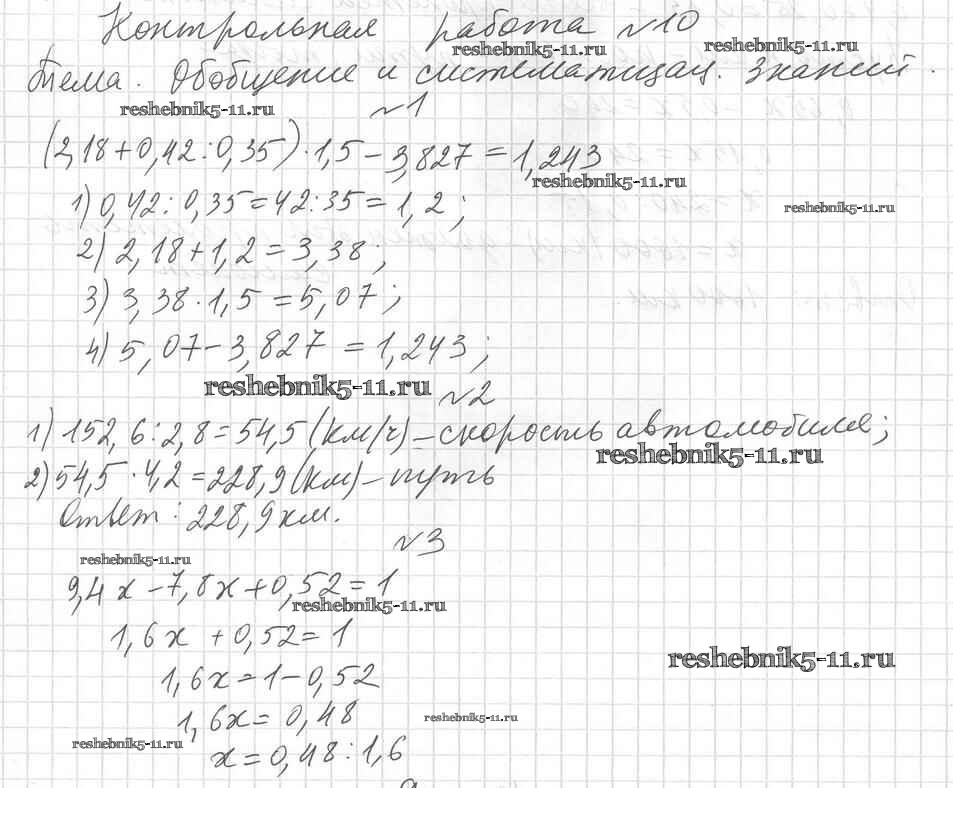 Контрольная работа №10
reshebnik5-11.ru reshebnik5-11.ru
Тема. Обобщение и систематизац. знаний.
reshebnik5-11.ru
№1
(2,18+0,42:0,35)·1,5-3,827=1,243
reshebnik5-11.ru
1) 0,42:0,35=42:35=1,2;
reshebnik5-11.ru
2) 2,18+1,2=3,38;
3) 3,38·1,5=5,07;
4) 5,07-3,827=1,243;
reshebnik5-11.ru
№2
1) 152,6:2,8=54,5 (км/ч) – скорость автомобиля;
reshebnik5-11.ru
2) 54,5·4,2=228,9 (км) – путь
Ответ: 228,9 км.
№3
reshebnik5-11.ru
9,4x-7,8x+0,52=1
reshebnik5-11.ru
1,6x+0,52=1
reshebnik5-11.ru
1,6x=1-0,52
1,6x=0,48
reshebnik5-11.ru
reshebnik5-11.ru
x=0,48:1,6